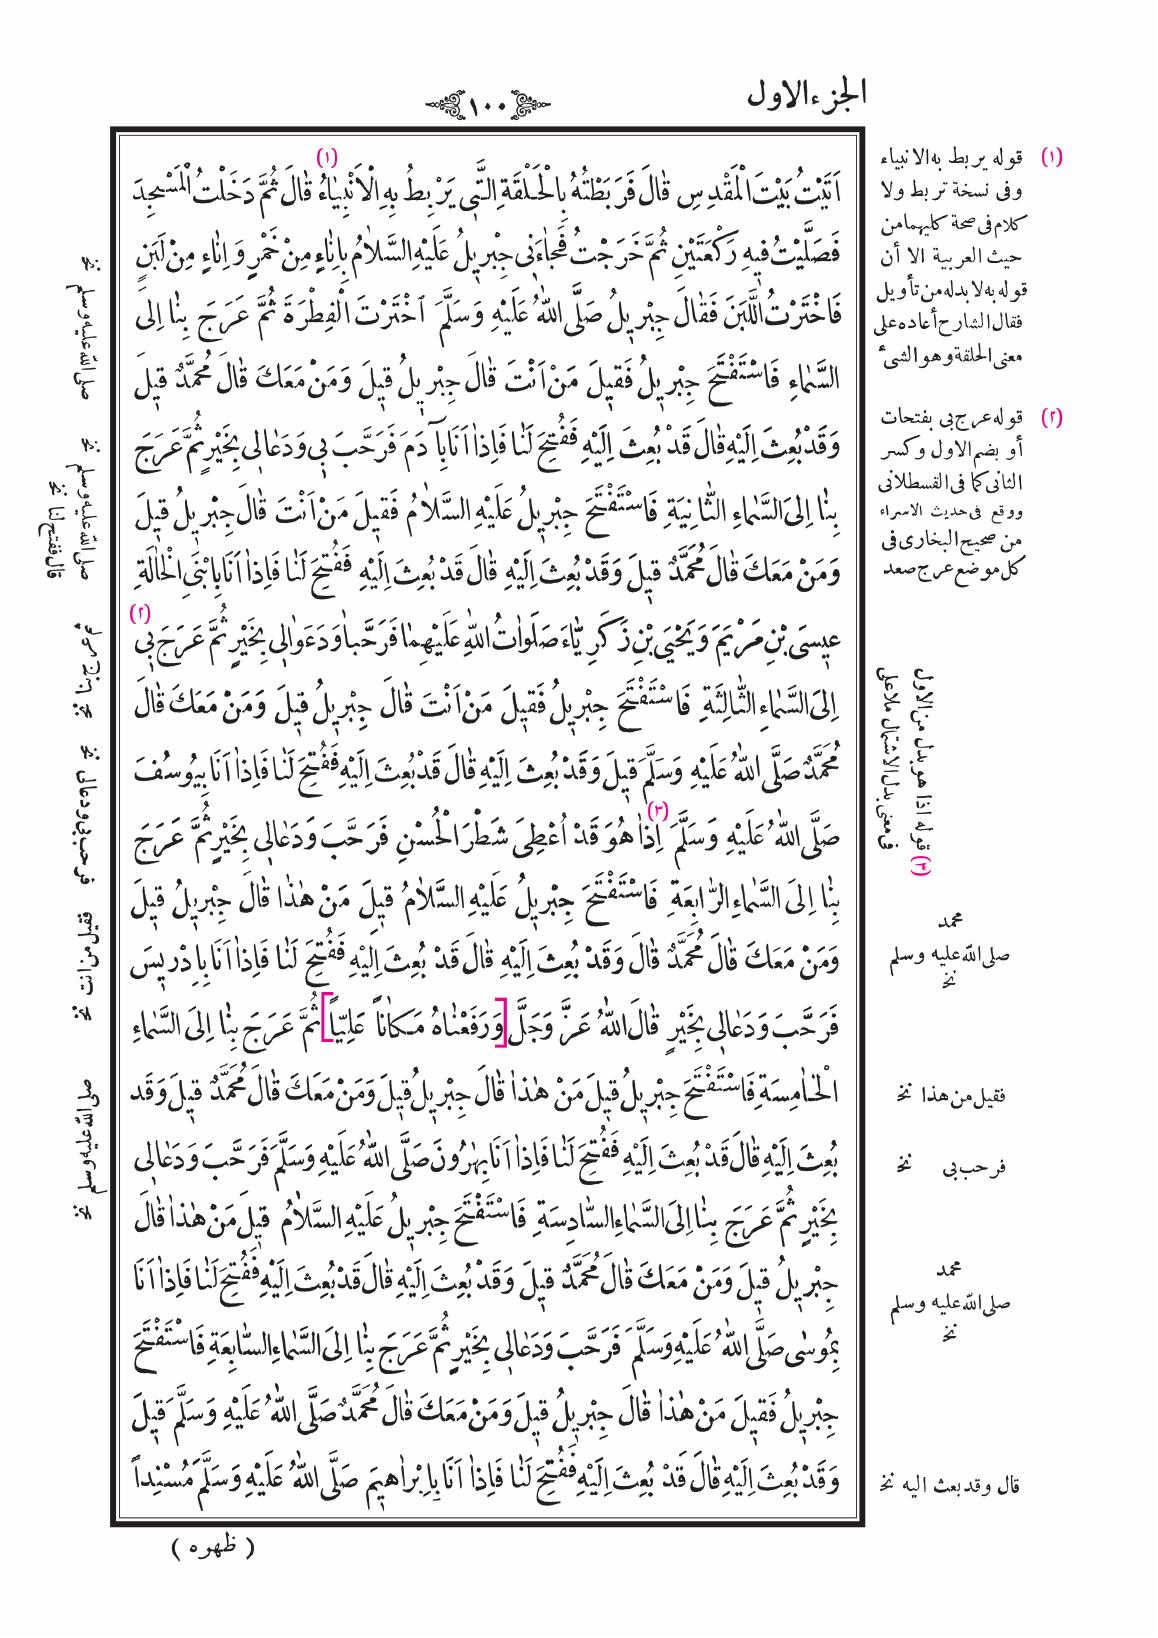 الجزء الاول
١٠٠
اَتَيْتُ بَيْتَ الْمَقْدِسِ قَالَ فَرَبَطْتُهُ بِالْحَلْقَةِ الَّتِي يَرْبِطُ بِهِ الْاَنْبِيَاءُ (١) قَالَ ثُمَّ دَخَلْتُ الْمَسْجِدَ
فَصَلَّيْتُ فِيهِ رَكْعَتَيْنِ ثُمَّ خَرَجْتُ فَجَاءَنِي جِبْرِيلُ عَلَيْهِ السَّلَامُ بِاِنَاءٍ مِنْ خَمْرٍ وَاِنَاءٍ مِنْ لَبَنٍ
فَاخْتَرْتُ اللَّبَنَ فَقَالَ جِبْرِيلُ صَلَّى اللهُ عَلَيْهِ وَسَلَّمَ اخْتَرْتَ الْفِطْرَةَ ثُمَّ عَرَجَ بِنَا اِلَى
السَّمَاءِ فَاسْتَفْتَحَ جِبْرِيلُ فَقِيلَ مَنْ اَنْتَ قَالَ جِبْرِيلُ قِيلَ وَمَنْ مَعَكَ قَالَ مُحَمَّدٌ قِيلَ
وَقَدْ بُعِثَ اِلَيْهِ قَالَ قَدْ بُعِثَ اِلَيْهِ فَفُتِحَ لَنَا فَاِذَا اَنَا بِآدَمَ فَرَحَّبَ بِي وَدَعَالِي بِخَيْرٍ ثُمَّ عَرَجَ
بِنَا اِلَى السَّمَاءِ الثَّانِيَةِ فَاسْتَفْتَحَ جِبْرِيلُ عَلَيْهِ السَّلَامُ فَقِيلَ مَنْ اَنْتَ قَالَ جِبْرِيلُ قِيلَ
وَمَنْ مَعَكَ قَالَ مُحَمَّدٌ قِيلَ وَقَدْ بُعِثَ اِلَيْهِ قَالَ قَدْ بُعِثَ اِلَيْهِ فَفُتِحَ لَنَا فَاِذَا اَنَا بِابْنَيِ الْخَالَةِ
عِيسَى بْنِ مَرْيَمَ وَيَحْيَى بْنِ زَكَرِيَّاءَ صَلَوَاتُ اللهِ عَلَيْهِمَا فَرَحَّبَا وَدَعَوَا لِي بِخَيْرٍ ثُمَّ عَرَجَ بِي (٢)
اِلَى السَّمَاءِ الثَّالِثَةِ فَاسْتَفْتَحَ جِبْرِيلُ فَقِيلَ مَنْ اَنْتَ قَالَ جِبْرِيلُ قِيلَ وَمَنْ مَعَكَ قَالَ
مُحَمَّدٌ صَلَّى اللهُ عَلَيْهِ وَسَلَّمَ قِيلَ وَقَدْ بُعِثَ اِلَيْهِ قَالَ قَدْ بُعِثَ اِلَيْهِ فَفُتِحَ لَنَا فَاِذَا اَنَا بِيُوسُفَ
صَلَّى اللهُ عَلَيْهِ وَسَلَّمَ (٣) اِذَا هُوَ قَدْ اُعْطِيَ شَطْرَ الْحُسْنِ فَرَحَّبَ وَدَعَالِي بِخَيْرٍ ثُمَّ عَرَجَ
بِنَا اِلَى السَّمَاءِ الرَّابِعَةِ فَاسْتَفْتَحَ جِبْرِيلُ عَلَيْهِ السَّلَامُ قِيلَ مَنْ هٰذَا قَالَ جِبْرِيلُ قِيلَ
وَمَنْ مَعَكَ قَالَ مُحَمَّدٌ قَالَ وَقَدْ بُعِثَ اِلَيْهِ قَالَ قَدْ بُعِثَ اِلَيْهِ فَفُتِحَ لَنَا فَاِذَا اَنَا بِاِدْرِيسَ
فَرَحَّبَ وَدَعَالِي بِخَيْرٍ قَالَ اللهُ عَزَّ وَجَلَّ [وَرَفَعْنَاهُ مَكَاناً عَلِيّاً] ثُمَّ عَرَجَ بِنَا اِلَى السَّمَاءِ
الْخَامِسَةِ فَاسْتَفْتَحَ جِبْرِيلُ قِيلَ مَنْ هٰذَا قَالَ جِبْرِيلُ قِيلَ وَمَنْ مَعَكَ قَالَ مُحَمَّدٌ قِيلَ وَقَد
بُعِثَ اِلَيْهِ قَالَ قَدْ بُعِثَ اِلَيْهِ فَفُتِحَ لَنَا فَاِذَا اَنَا بِهٰرُونَ صَلَّى اللهُ عَلَيْهِ وَسَلَّمَ فَرَحَّبَ وَدَعَالِي
بِخَيْرٍ ثُمَّ عَرَجَ بِنَا اِلَى السَّمَاءِ السَّادِسَةِ فَاسْتَفْتَحَ جِبْرِيلُ عَلَيْهِ السَّلَامُ قِيلَ مَنْ هٰذَا قَالَ
جِبْرِيلُ قِيلَ وَمَنْ مَعَكَ قَالَ مُحَمَّدٌ قِيلَ وَقَدْ بُعِثَ اِلَيْهِ قَالَ قَدْ بُعِثَ اِلَيْهِ فَفُتِحَ لَنَا فَاِذَا اَنَا
بِمُوسٰى صَلَّى اللهُ عَلَيْهِ وَسَلَّمَ فَرَحَّبَ وَدَعَالِي بِخَيْرٍ ثُمَّ عَرَجَ بِنَا اِلَى السَّمَاءِ السَّابِعَةِ فَاسْتَفْتَحَ
جِبْرِيلُ فَقِيلَ مَنْ هٰذَا قَالَ جِبْرِيلُ قِيلَ وَمَنْ مَعَكَ قَالَ مُحَمَّدٌ صَلَّى اللهُ عَلَيْهِ وَسَلَّمَ قِيلَ
وَقَدْ بُعِثَ اِلَيْهِ قَالَ قَدْ بُعِثَ اِلَيْهِ فَفُتِحَ لَنَا فَاِذَا اَنَا بِاِبْرَاهِيمَ صَلَّى اللهُ عَلَيْهِ وَسَلَّمَ مُسْنِداً
( ظهوره )
(١) قوله يربط به الانبياء
وفى نسخة تربط ولا
كلام فى صحة كليهما من
حيث العربية الا أن
قوله به لا بد له من تأويل
فقال الشارح أعاده على
معنى الحلقة وهو الشئ
(٢) قوله عرج بى بفتحات
أو بضم الاول وكسر
الثانى كما فى القسطلانى
ووقع فى حديث الاسراء
من صحيح البخارى فى
كل موضع عرج صعد
(٣) قوله اذا هو بدل من الاول
فى معنى بدل الاشتمال ملا على
محمد
صلى الله عليه وسلم
نخ
فقيل من هذا نخ
فرحب بى نخ
محمد
صلى الله عليه وسلم
نخ
قال وقد بعث اليه نخ
صلى الله عليه وسلم نخ
صلى الله عليه وسلم نخ
قال ففتح لنا نخ
نخ
فرحب بى ودعالى نخ
فقيل من انت نخ
صلى الله عليه وسلم نخ